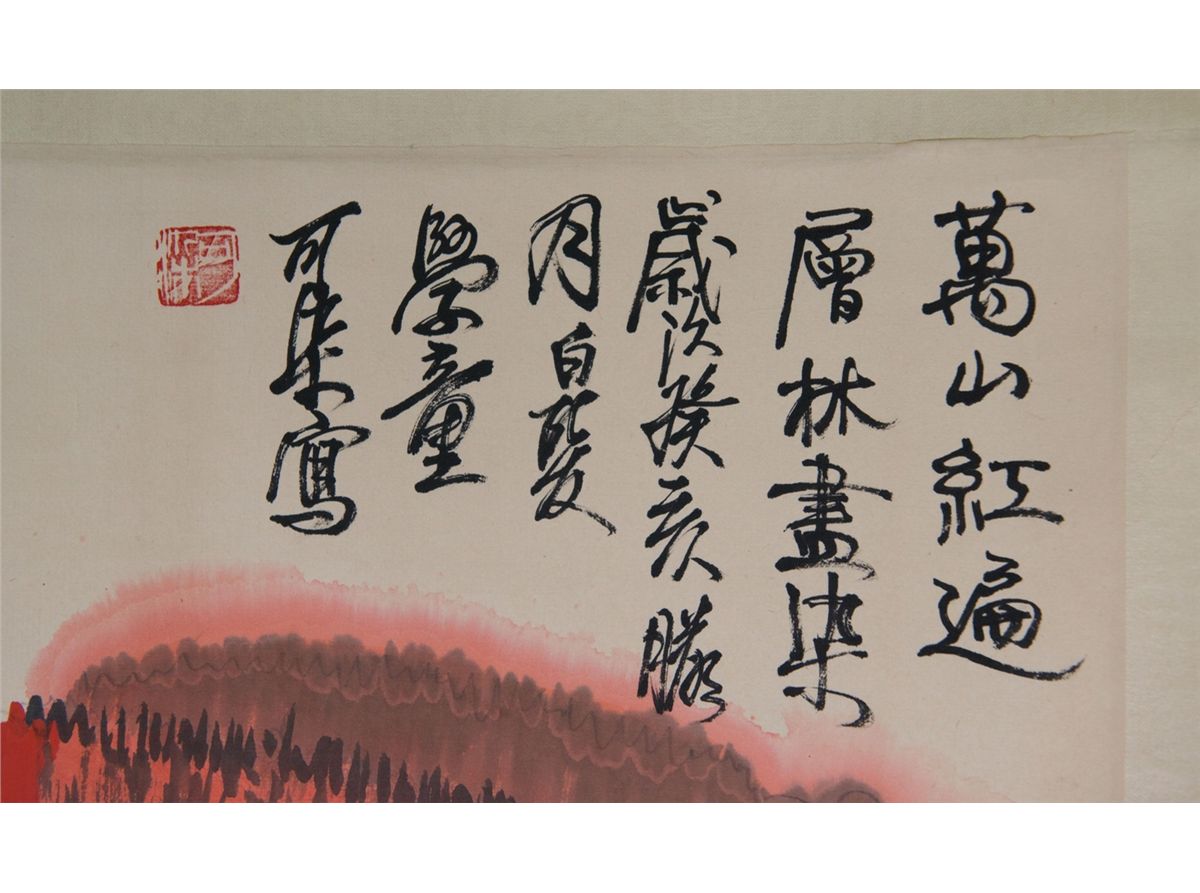 萬山紅遍
層林盡染
歲次癸亥臘
月白髮
學童
可染寫
可染